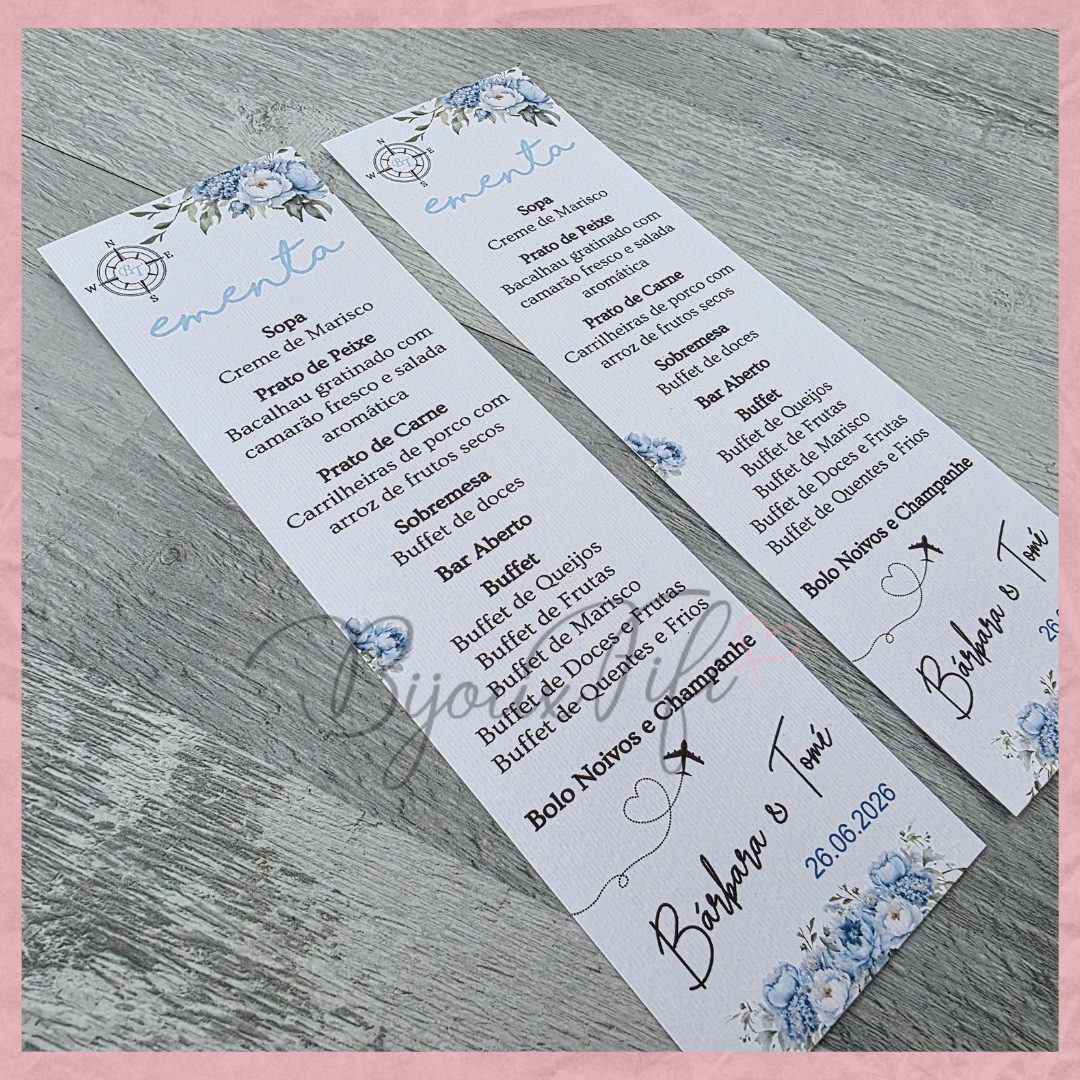 N
E
S
W
BT
ementa
Sopa
Creme de Marisco
Prato de Peixe
Bacalhau gratinado com
camarão fresco e salada
aromática
Prato de Carne
Carrilheiras de porco com
arroz de frutos secos
Sobremesa
Buffet de doces
Bar Aberto
Buffet
Buffet de Queijos
Buffet de Frutas
Buffet de Marisco
Buffet de Doces e Frutas
Buffet de Quentes e Frios
Bolo Noivos e Champanhe
Bárbara & Tomé
26.06.2026
N
E
S
W
BT
ementa
Sopa
Creme de Marisco
Prato de Peixe
Bacalhau gratinado com
camarão fresco e salada
aromática
Prato de Carne
Carrilheiras de porco com
arroz de frutos secos
Sobremesa
Buffet de doces
Bar Aberto
Buffet
Buffet de Queijos
Buffet de Frutas
Buffet de Marisco
Buffet de Doces e Frutas
Buffet de Quentes e Frios
Bolo Noivos e Champanhe
Bárbara & Tomé
26
Bijoux Fifi